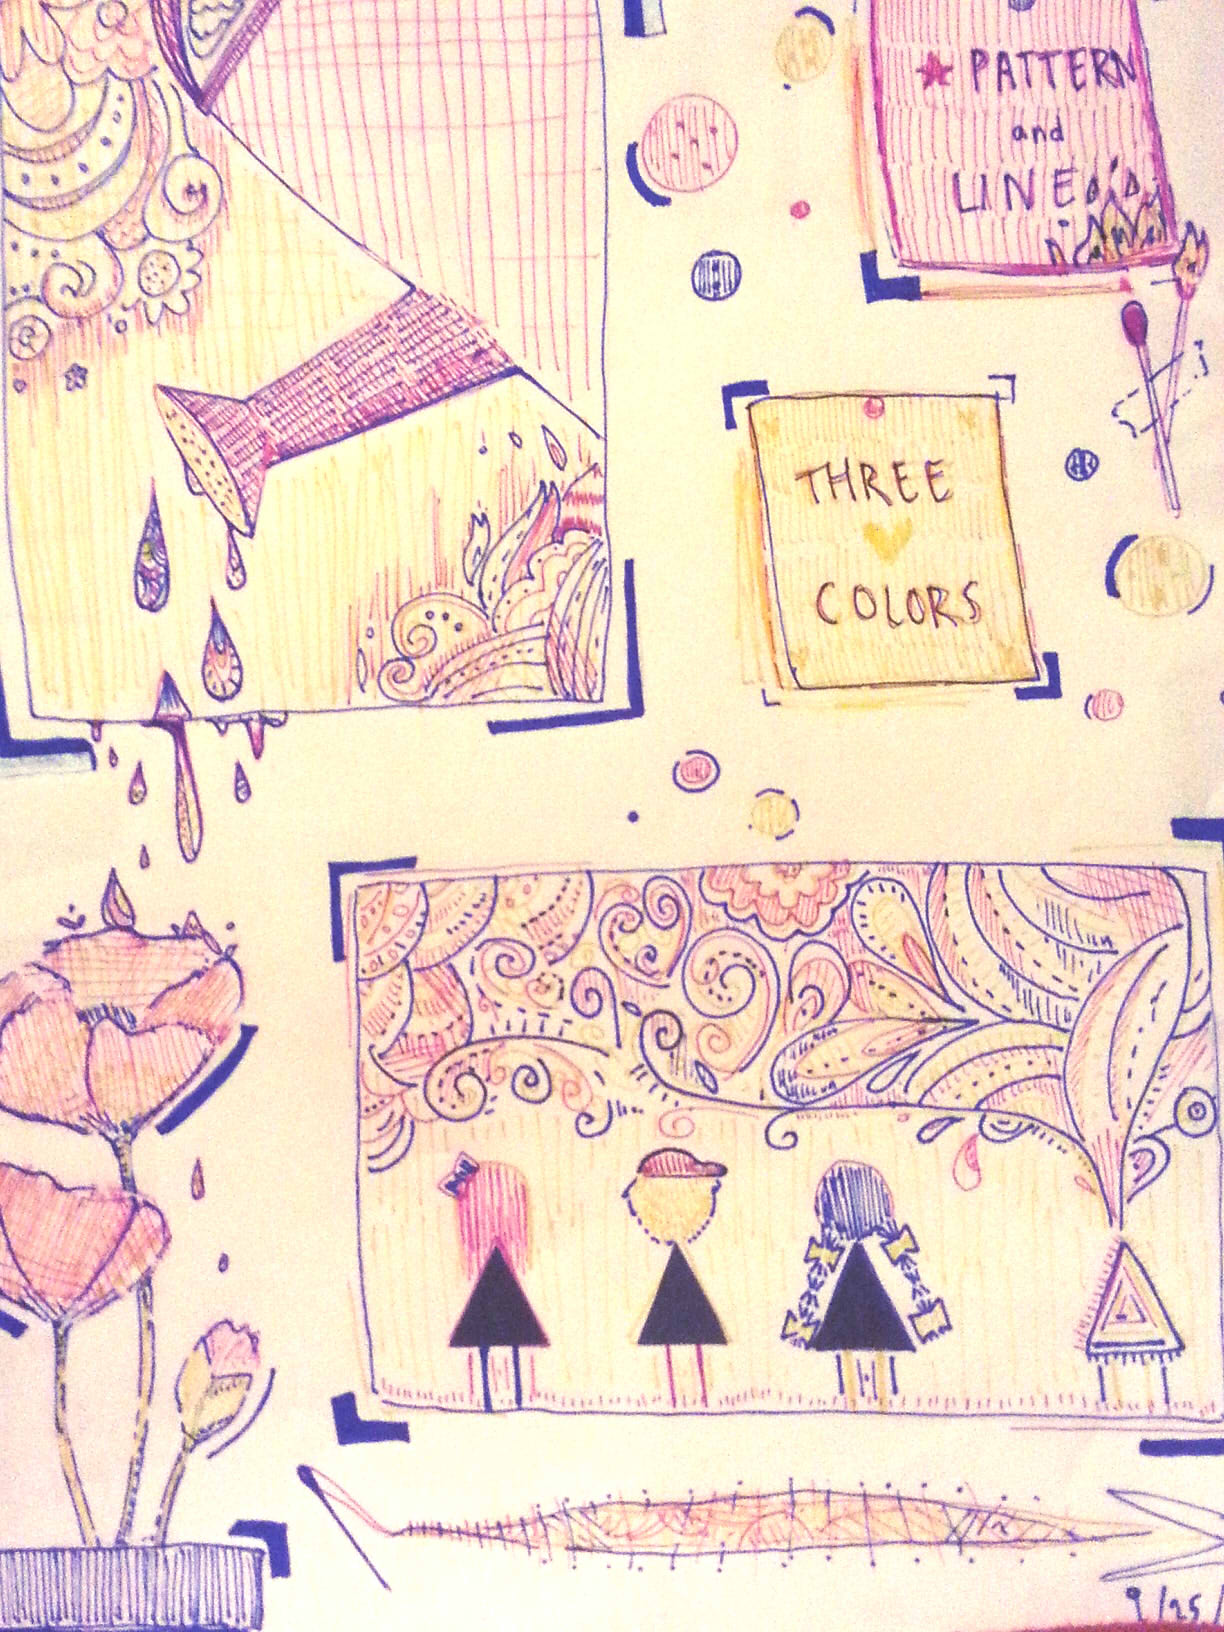 ★ PATTERN
and
LINE
THREE
COLORS
9/25/